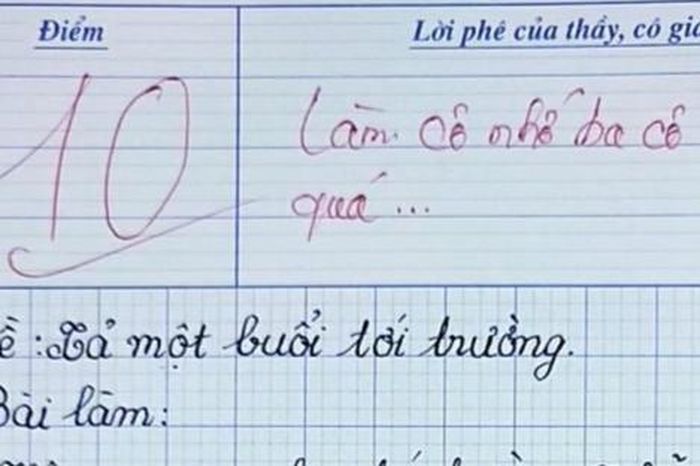 Điểm
Lời phê của thầy, cô giá
10
Làm cô nhớ ba cô
quá...
ề: Tả một buổi tới trường.
Bài làm: